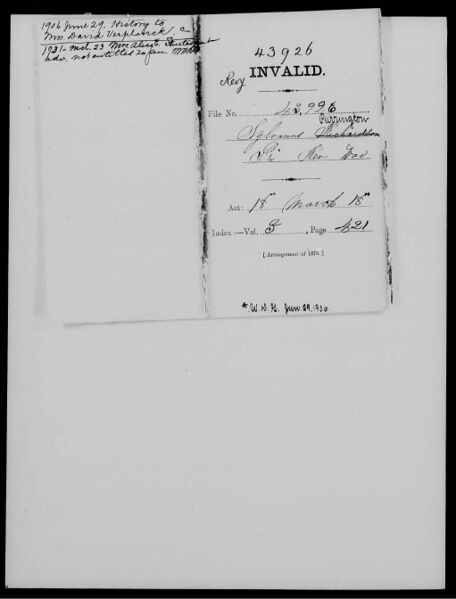 1906 June 29. History to
Mrs David Verplanck. C
1921- Mch. 23 Mrs Alice
adv. not entitled to pen.
43926
Revy
INVALID.
File No. 43,926
Purrington
Sylvanus Richardson
Pri Rev War
Act: 18" March 18"
Index:—Vol. 3, Page 421
[Arrangement of 1870.]
*W. D. H. Jun. 29, 1906.